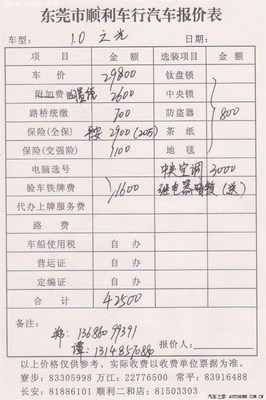 东莞市顺利车行汽车报价表
车型： 1.0 之光 日期：
项 目 金 额 选装项目 金 额
车 价 29800 钛盘锁
附加费 2600 中央锁
路桥统缴 700 防盗器 800
保险(全保) 2900 茶 纸
保险(交强险) 1100 地 毯
电脑选号 中央空调 3000
验车铁牌费 1600 继电器 (送)
代办上牌服务费
路 费
车船使用税 自 办 自 办
营运证 自 办 自 办
定编证 自 办 自 办
合 计 42500
备注：
谭：13148576080 报价人：
以上价格仅供参考、实际收费以收费单位票据为准。
寮步：83305998 万江：22776500 常平：83916488
长安：81886101 顺利二和店：81503303
汽车之家